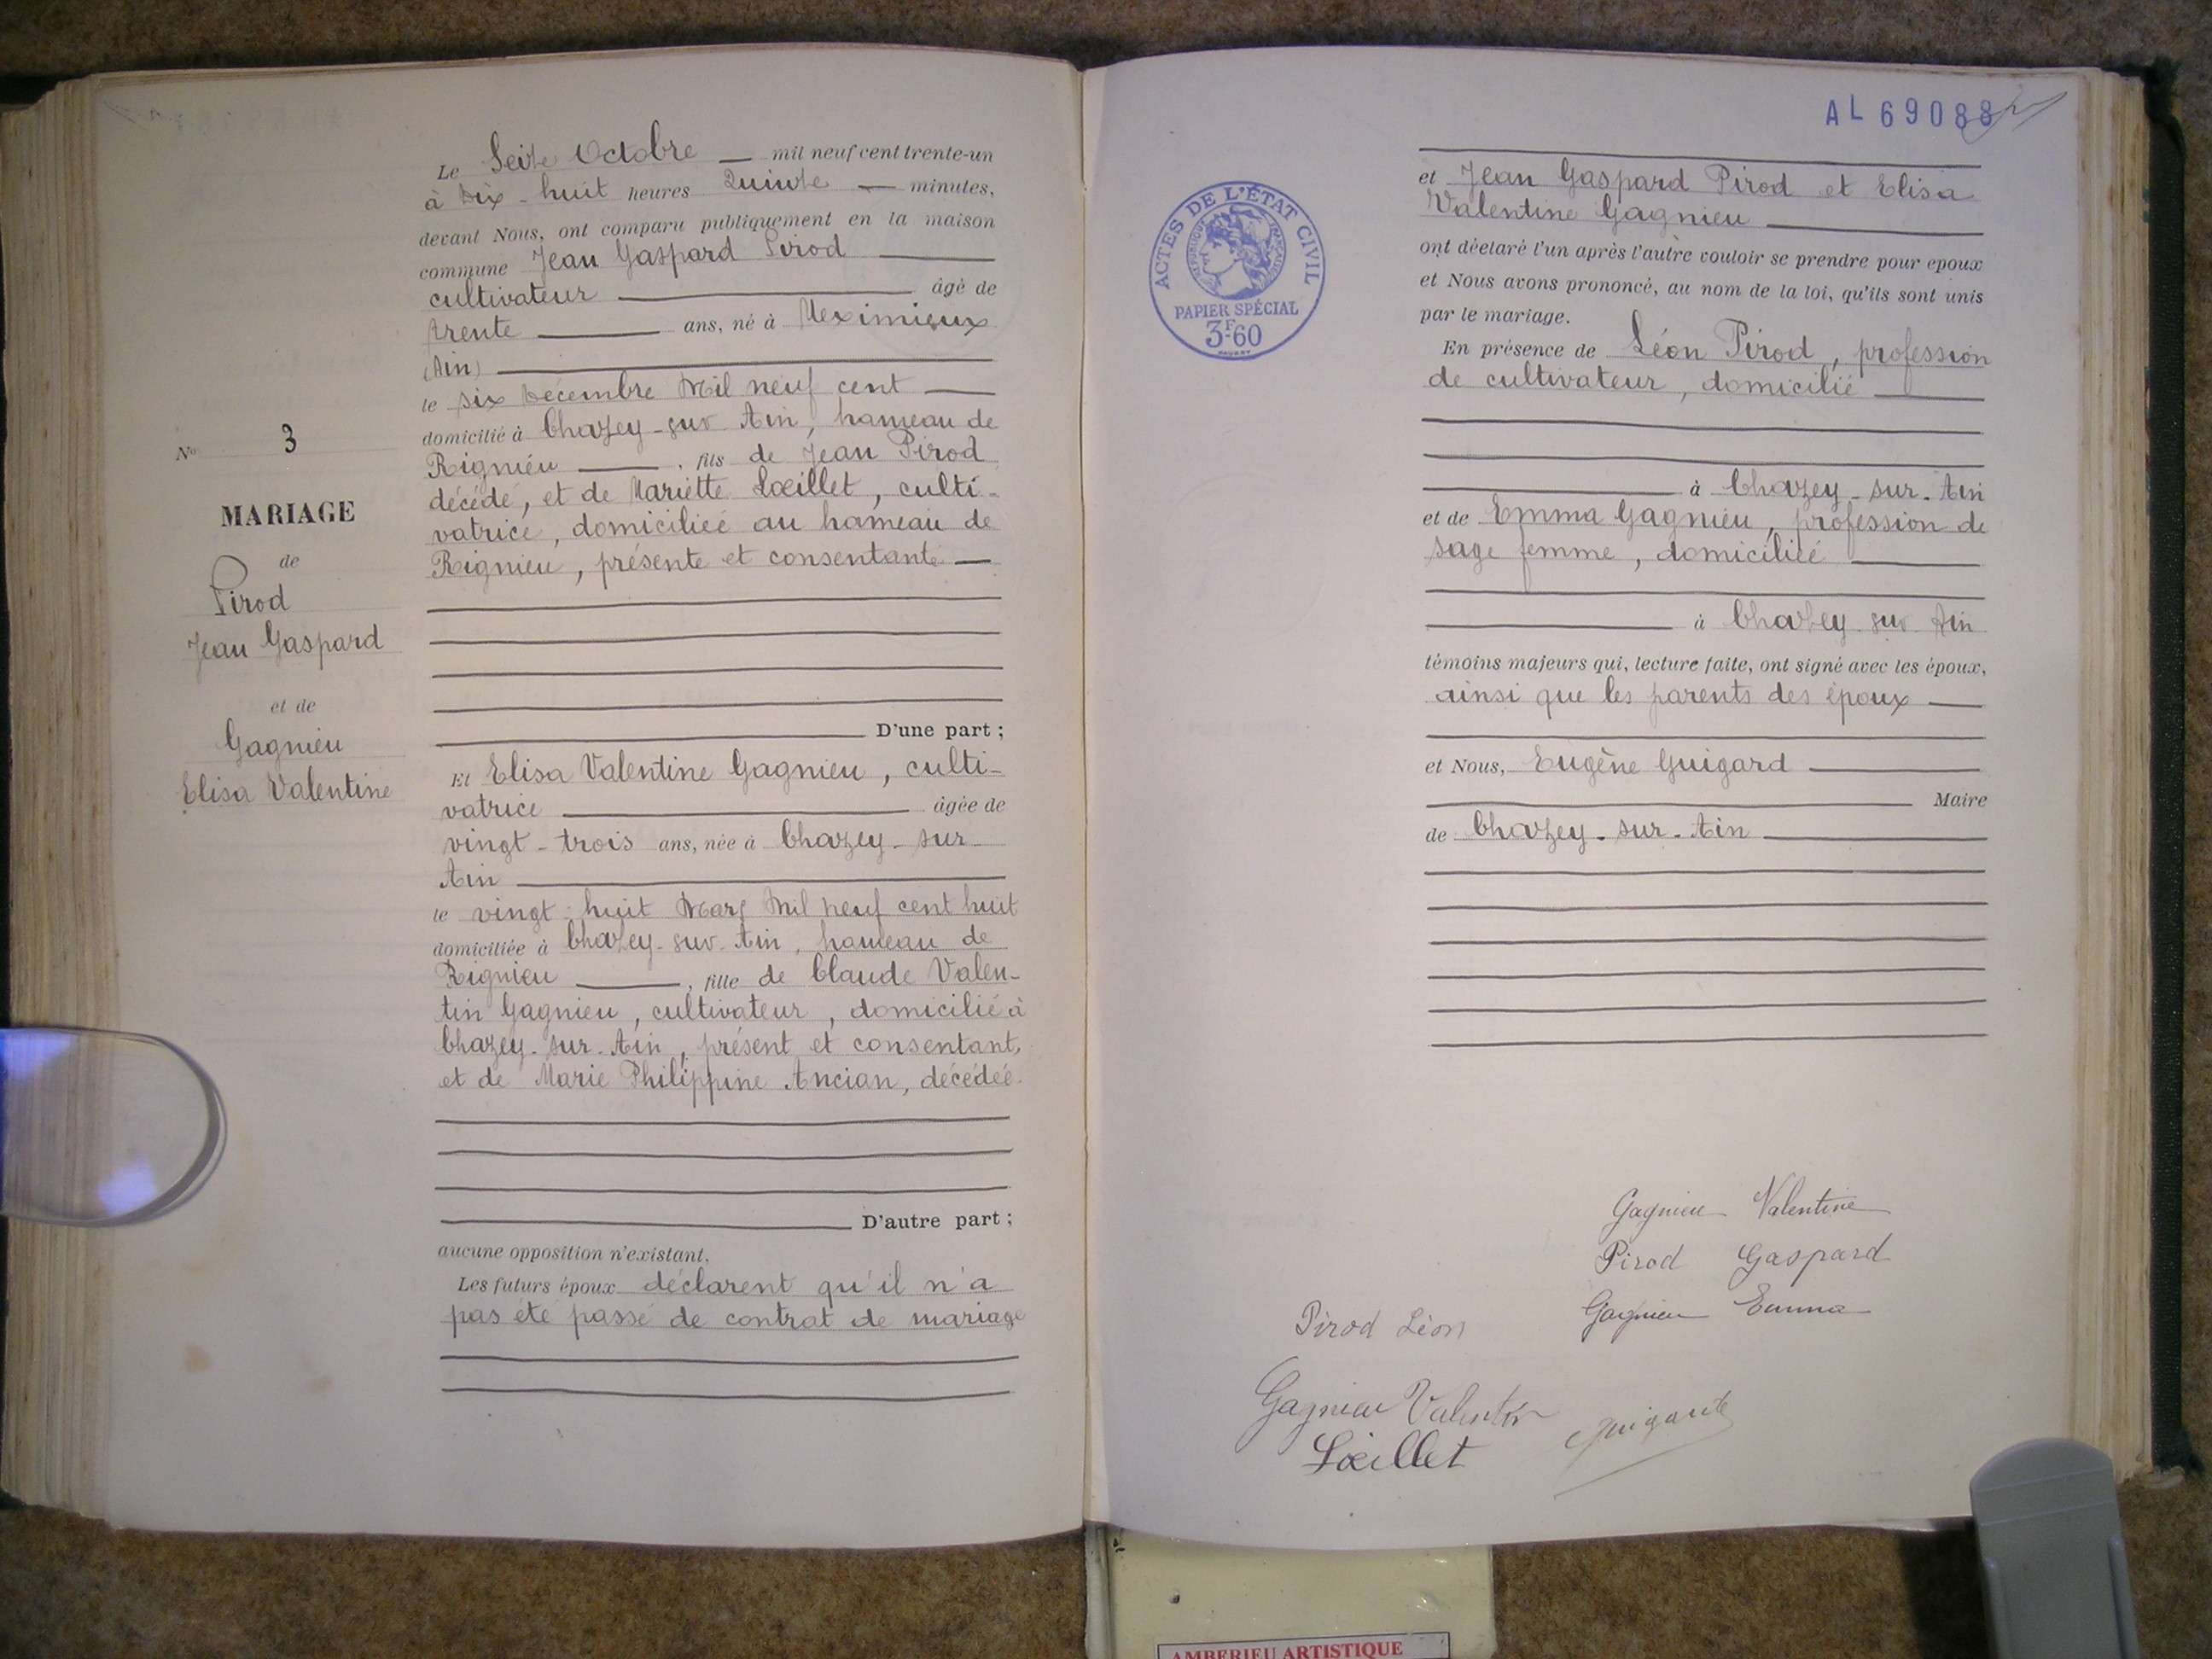 Le Seize Octobre — mil neuf cent trente-un
à Dix-huit heures Quinze — minutes,
devant Nous, ont comparu publiquement en la maison
commune Jean Gaspard Pirod
cultivateur âgé de
trente ans, né à Meximieux
(Ain)
le six Décembre Mil neuf cent
domicilié à Chazey-sur Ain, hameau de
Rignieu , fils de Jean Pirod
décédé, et de Mariette Lœillet, culti-
vatrice, domiciliée au hameau de
Rignieu, présente et consentante
D'une part ;
Nº 3
MARIAGE
de
Pirod
Jean Gaspard
et de
Gagnieu
Elisa Valentine
Et Elisa Valentine Gagnieu, culti-
vatrice âgée de
vingt-trois ans, née à Chazey-sur-
Ain
le vingt-huit Mars Mil neuf cent huit
domiciliée à Chazey-sur-Ain, hameau de
Rignieu , fille de Claude Valen-
tin Gagnieu, cultivateur, domicilié à
Chazey-sur-Ain, présent et consentant,
et de Marie Philippine Ancian, décédée.
D'autre part ;
aucune opposition n'existant.
Les futurs époux déclarent qu'il n'a
pas été passé de contrat de mariage
AL 69088
ACTES DE L'ÉTAT CIVIL
RÉPUBLIQUE FRANÇAISE
PAPIER SPÉCIAL
3F.60
et Jean Gaspard Pirod et Elisa
Valentine Gagnieu
ont déclaré l'un après l'autre vouloir se prendre pour époux
et Nous avons prononcé, au nom de la loi, qu'ils sont unis
par le mariage.
En présence de Léon Pirod, profession
de cultivateur, domicilié
à Chazey-sur-Ain
et de Emma Gagnieu, profession de
sage femme, domiciliée
à Chazey sur Ain
témoins majeurs qui, lecture faite, ont signé avec les époux,
ainsi que les parents des époux
et Nous, Eugène Guigard
Maire
de Chazey-sur-Ain
Gagnieu Valentine
Pirod Gaspard
Gagnieu Emma
Pirod Léon
Gagnieu Valentin
Lœillet
AMBERIEU ARTISTIQUE